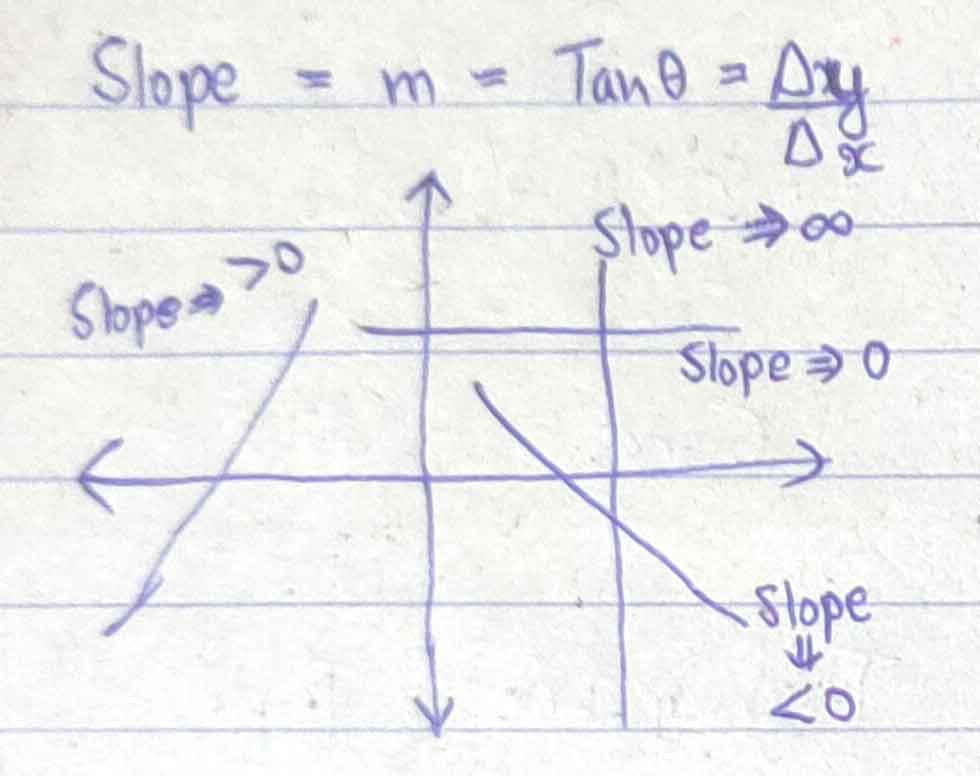 Slope = m = Tanθ = Δy/Δx
Slope ⇒ ∞
Slope ⇒ >0
Slope ⇒ 0
Slope
⇓
<0